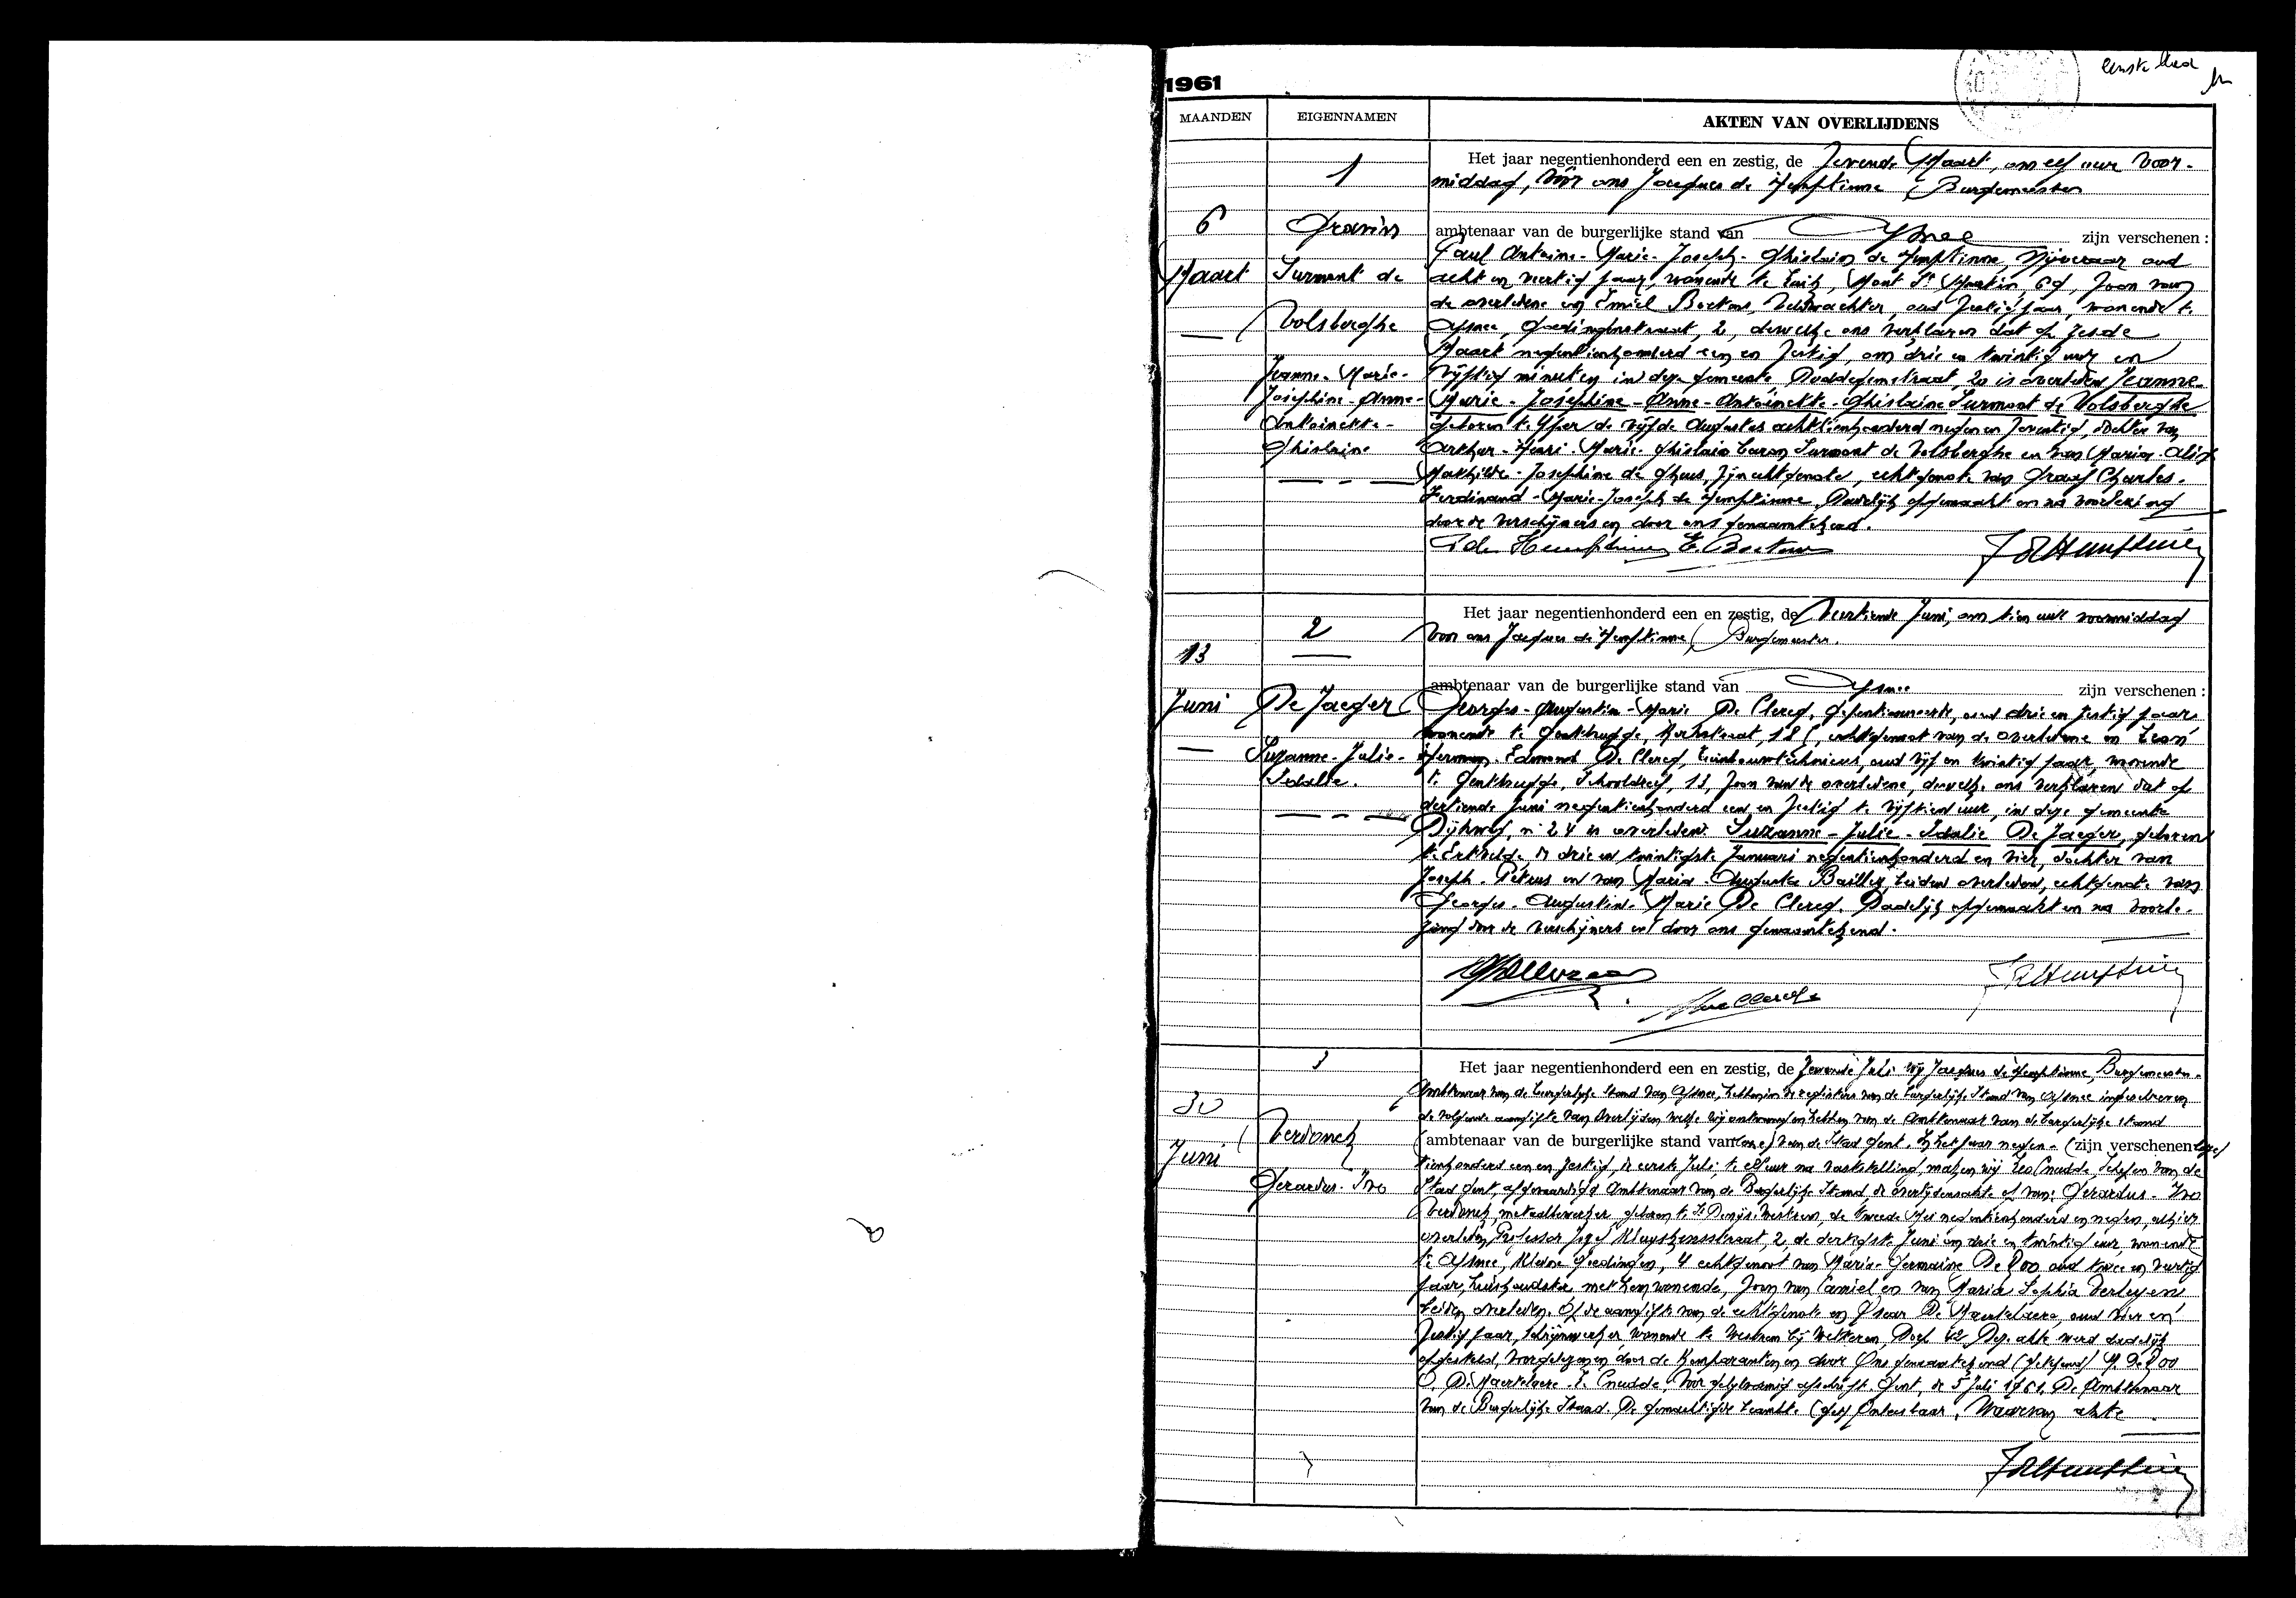 1961
Eerste blad
MAANDEN EIGENNAMEN AKTEN VAN OVERLIJDENS
1
6
Maart
Gravin
Surmont de
Volsberghe
Jeanne-Marie-
Josephine-Anne-
Antoinette-
Ghislaine
Het jaar negentienhonderd een en zestig, de zevende Maart, om elf uur voor-
middag, vóór ons Jacques de Hemptinne, Burgemeester
ambtenaar van de burgerlijke stand van Afsnee zijn verschenen :
Paul Antoine-Marie-Joseph-Ghislain de Hemptinne, nijveraar oud
acht en veertig jaar, wonende te Luik, Mont St Martin, 69, zoon van
de overledene en Emiel Boetens, veldwachter, oud zestig jaar, wonende te
Afsnee, Goedingenstraat, 2, dewelke ons verklaren dat op zesde
Maart negentienhonderd een en zestig, om drie en twintig uur en
vijftig minuten in deze gemeente, Duddegemstraat, 20 is overleden Jeanne-
Marie-Josephine-Anne-Antoinette-Ghislaine Surmont de Volsberghe
geboren te Yper de vijfde Augustus achttienhonderd negen en zeventig, dochter van
Arthur-Henri-Marie-Ghislain baron Surmont de Volsberghe en van Maria-Alix
Mathilde-Josephine de Gheus, zijn echtgenote, echtgenote van Graaf Charles-
Ferdinand-Marie-Joseph de Hemptinne. Dadelijk opgemaakt en na voorlezing
door de verschijners en door ons genaamtekend.
P de Hemptinne E. Boetens J de Hemptinne
2
13
Juni
De Jaeger
Suzanne-Julie-
Idalie.
Het jaar negentienhonderd een en zestig, de veertiende Juni, om tien uur voormiddag
voor ons Jacques de Hemptinne, Burgemeester.
ambtenaar van de burgerlijke stand van Afsnee zijn verschenen :
Georges-Augustin-Marie De Clercq, gepensionneerde, oud drie en zestig jaar
wonende te Gentbrugge, Kerkstraat, 18, echtgenoot van de overledene en Leon
Herman-Edmond De Clercq, tuinbouwtechnicus, oud vijf en twintig jaar, wonende
te Gentbrugge, Schooldreef, 13, zoon van de overledene, dewelke ons verklaren dat op
dertiende Juni negentienhonderd een en zestig te vijftien uur, in deze gemeente
Dijkweg, n° 24 is overleden Suzanne-Julie-Idalie De Jaeger, geboren
te Ertvelde de drie en twintigste Januari negentienhonderd en vier, dochter van
Joseph-Petrus en van Maria-Augusta Bailley beiden overleden, echtgenote van
Georges-Augustin-Marie De Clercq. Dadelijk opgemaakt en na voorle-
zing door de verschijners en door ons genaamtekend.
J de Hemptinne
3
30
Juni
Verdonck
Gerardus-Ivo
Het jaar negentienhonderd een en zestig, de zevende Juli wij Jacques de Hemptinne, Burgemeester-
Ambtenaar van de burgerlijke stand van Afsnee, hebben in de registers van de burgerlijke stand van Afsnee ingeschreven
de volgende aangifte van overlijden welke wij ontvangen hebben van de Ambtenaar van de burgerlijke stand
(ambtenaar van de burgerlijke stand van van de Stad Gent. In het jaar negen- (zijn verschenen
tienhonderd een en zestig, de eerste Juli te elf uur na vaststelling, maken wij Leo Cnudde, Schepen van de
Stad Gent, afgevaardigd Ambtenaar van de Burgerlijke Stand, de overlijdensakte op van: Gerardus-Ivo
Verdonck, metaalbewerker geboren te St Denijs-Westrem, de tweede Mei negentienhonderd en negen, alhier
overleden Professor Jozef Kluyskensstraat, 2, de dertigste Juni om drie en twintig uur, wonende
te Afsnee, Kleine Goedingen, 4 echtgenoot van Maria-Germaine De Roo oud twee en veertig
jaar, huishoudster met hem wonende, zoon van Camiel en van Maria Sophia Verleyen
beiden overleden. Op de aangifte van de echtgenote en Oscar De Maertelaere, oud vier en
zestig jaar, schrijnwerker wonende te Westrem bij Wetteren, Dorp 42 Deze akte werd dadelijk
opgesteld, voorgelezen en door de Komparanten en door Ons genaamtekend (getekend) M. De Roo
O. De Maertelaere - L. Cnudde, voor gelijkvormig afschrift. Gent, de 5 Juli 1961, De Ambtenaar
van de Burgerlijke Stand. De gemachtigde beambte (get) , Waarvan akte
J de Hemptinne